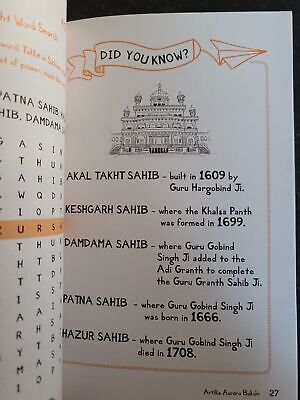 ght Word Search
word Takht in
at of power,
PATNA SAHIB,
HIB, DAMDAMA
G A S I N
T H U
A H I B
W Q D
I O P
K U R S
T H U
H T B
T I D
I S S
A H T
R T S
Y A P
M T A
I O
DID YOU KNOW?
AKAL TAKHT SAHIB - built in 1609 by
Guru Hargobind Ji.
KESHGARH SAHIB - where the Khalsa Panth
was formed in 1699.
DAMDAMA SAHIB - where Guru Gobind
Singh Ji added to the
Adi Granth to complete
the Guru Granth Sahib Ji.
PATNA SAHIB - where Guru Gobind Singh Ji
was born in 1666.
HAZUR SAHIB - where Guru Gobind Singh Ji
died in 1708.
Artika Aurora Bakshi
27